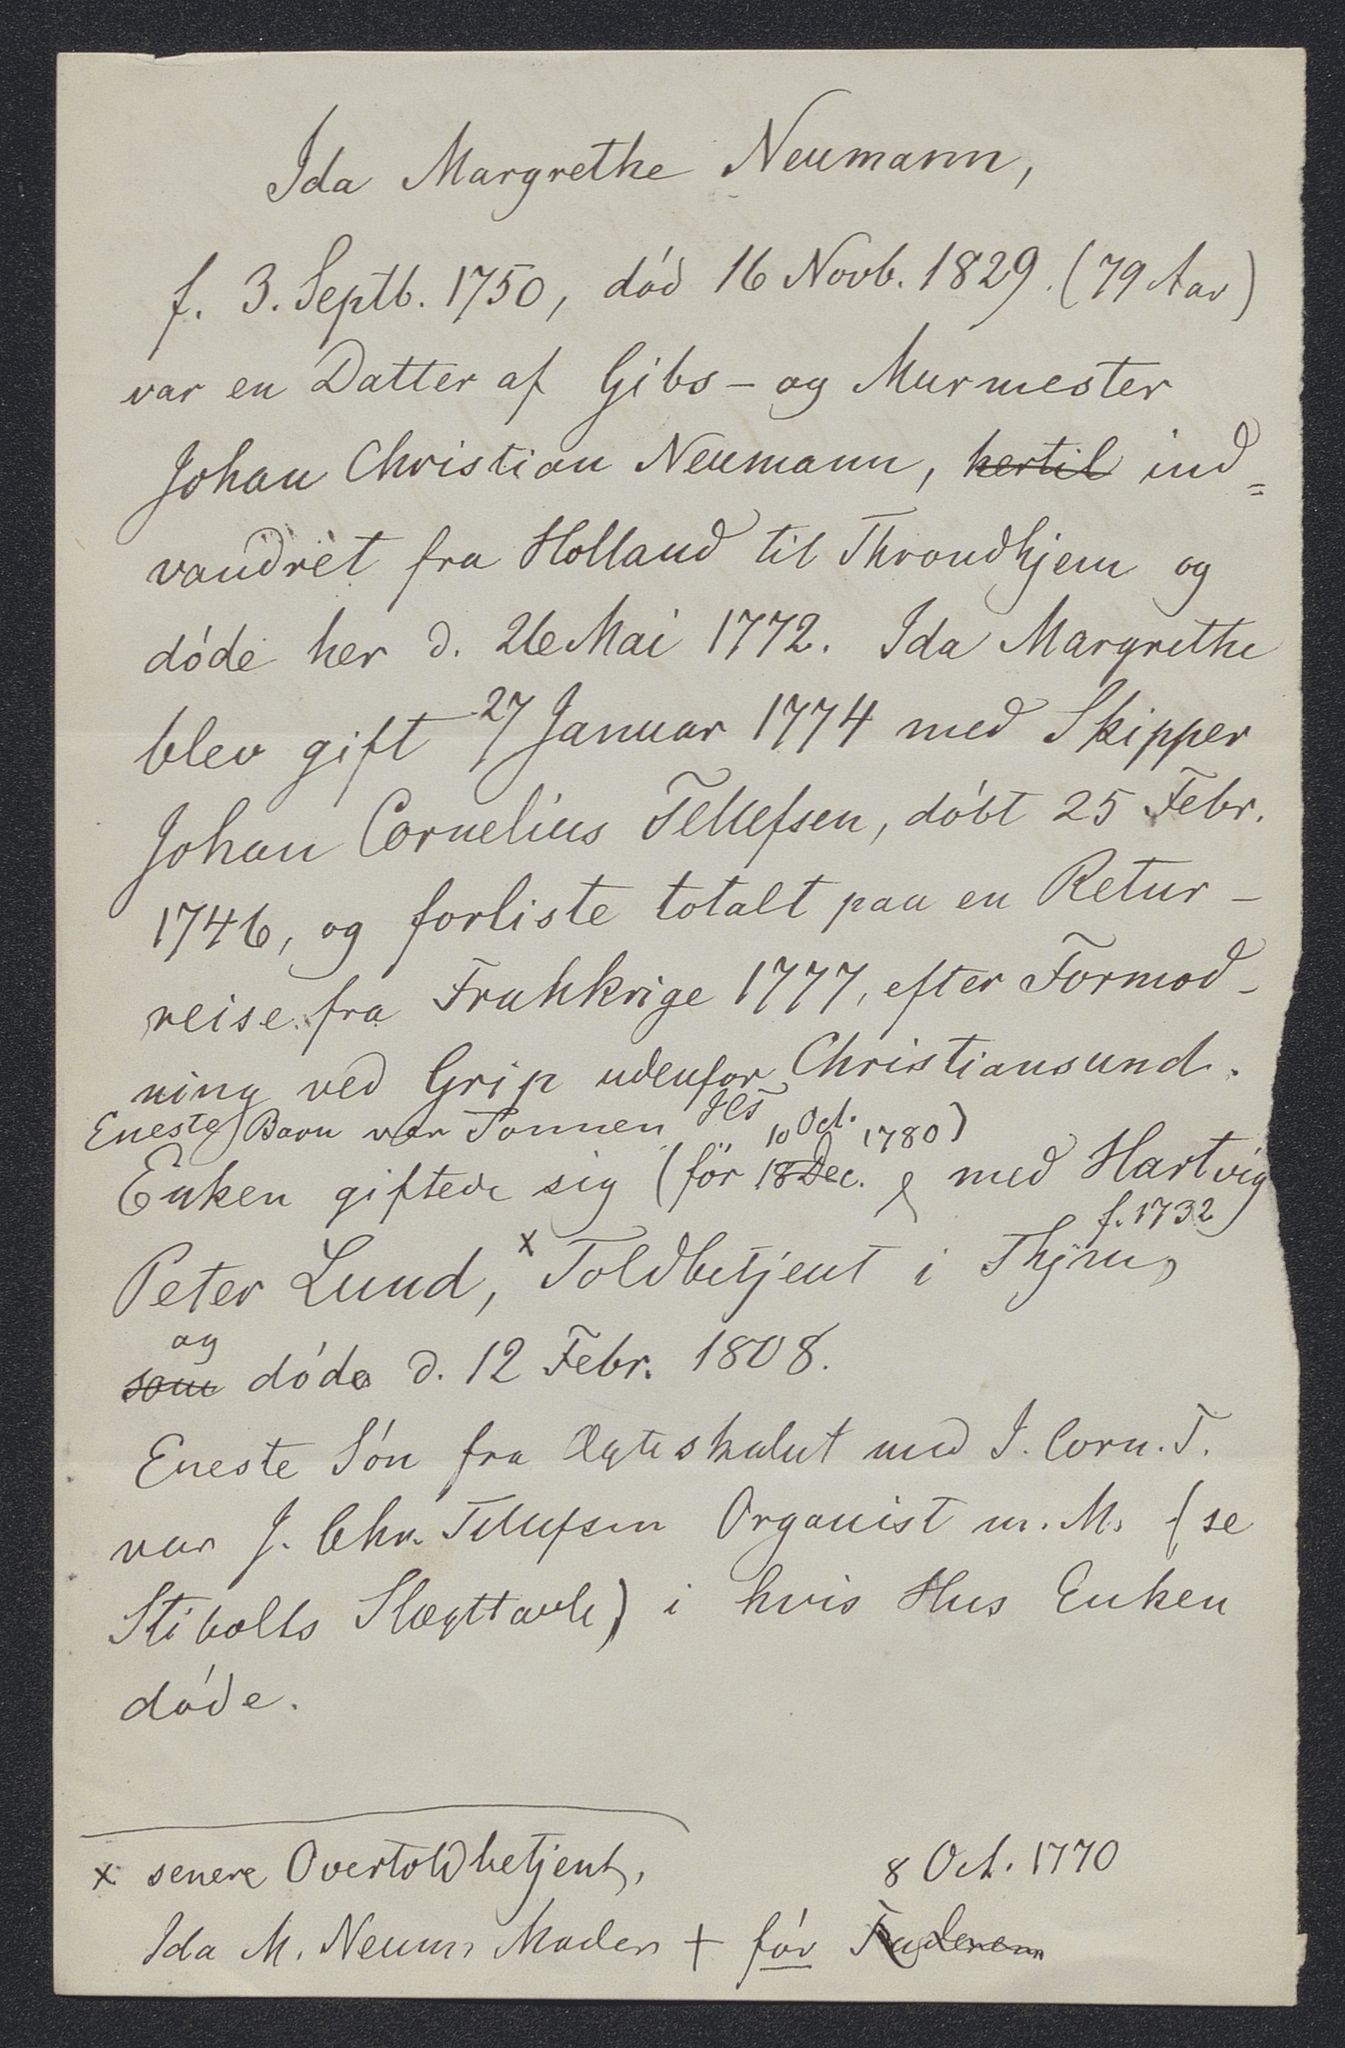 Ida Margrethe Neumann,
f. 3. Septb. 1750, död 16 Novb. 1829. (79 Aar)
var en Datter af Gibs- og Murmester
Johan Christian Neumann, hertil ind=
vandret fra Holland til Throndhjem og
döde her d. 26 Mai 1772. Ida Margrethe
blev gift 27/ Januar 1774 med Skipper
Johan Cornelius Tellefsen, döbt 25 Febr.
1746, og forliste totalt paa en Retur-
reise fra Frahkrige 1777, efter Formod-
ning ved Grip udenfor Christiansund.
Eneste Barn var Sönnen
10 Oct. 1780)
Enken giftede sig (för 18 Dec. med Hartvig
f. 1732
Peter Lund, x Toldbetjent i Thjm,
og
som döde d. 12 Febr. 1808.
Eneste Sön fra Ægteskabet med J. Corn. T.
var J. Chr. Tellefsen Organist m. M. (se
Stibolts Slægttavle) i hvis Hus Enken
döde.
x senere Overtoldbetjent,
8 Oct. 1770
Ida M. Neum. Moder + för Faderen